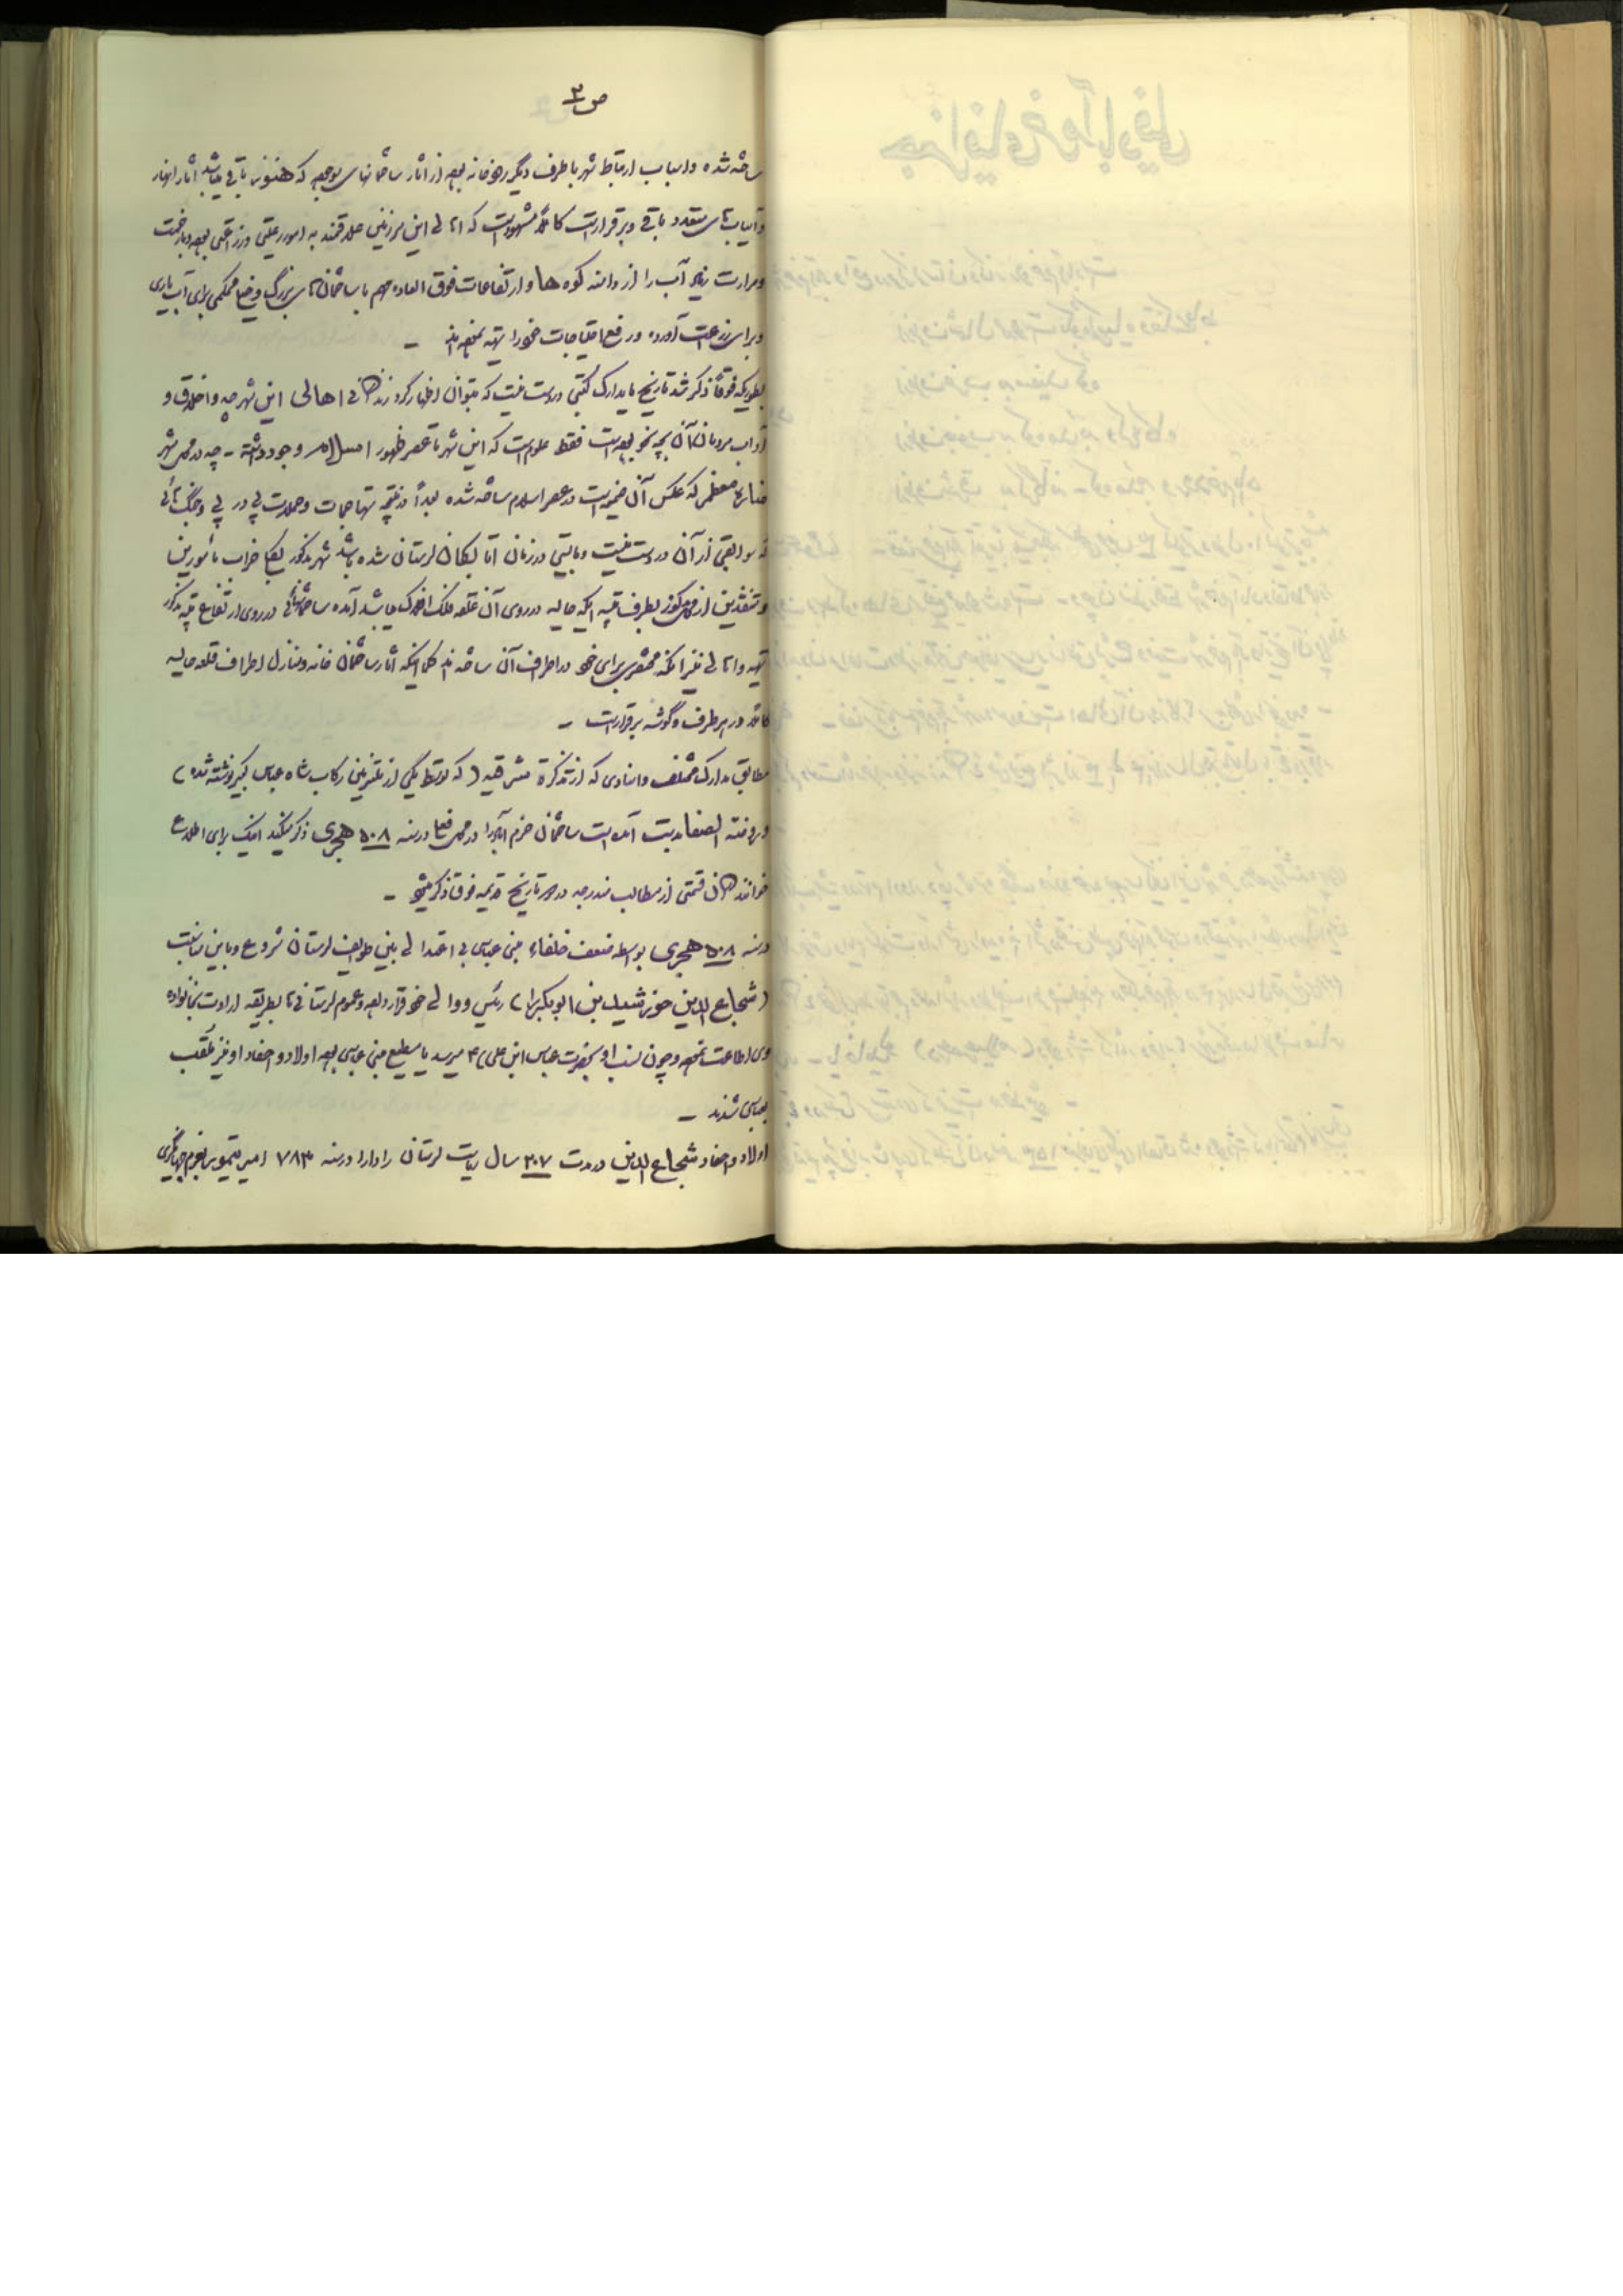 ص ۳
ساخته شده و اسباب ارتباط شهر با طرف دیگر رودخانه بوده از آثار ساختمانهای موجوده که هنوز باقی میباشد آثار انهار
و آسیابهای متعدد باقی و برقرار است کاملاً مشهود است که اهالی این سرزمین علاقمند به امور رعیتی و زراعتی بوده و با زحمت
و مرارت زیاد آب را از دامنه کوه ها و ارتفاعات فوق العاده مهم با ساختمانهای بزرگ و محکمی برای آب یاری
و برای زراعت آورده و رفع احتیاجات خود را تهیه نموده اند –
بطوریکه فوقاً ذکر شد تاریخ یا مدارک کتبی در دست نیست که بتوان اظهار کرد زندگانی اهالی این شهر چه و اخلاق و
آداب مردمان آن بچه نحو بوده است فقط معلوم است که این شهر تا عصر ظهور اسلام وجود داشته – چه در محل شهر
مناره معظمی که عکس آن ضمیمه است در عصر اسلام ساخته شده بعداً در نتیجه تهاجمات و حملات پی در پی و جنگ هائی
که سوابقی از آن در دست نیست و بایستی در زمان اتابکان لرستان شده باشد شهر مذکور بکلی خراب مأمورین
و متنفذین از محل مذکور بطرف تپه ایکه حالیه در روی آن قلعه فلک الافلاک میباشد آمده ساختمانهائی در روی ارتفاع تپه مذکور
تهیه و اهالی نیز ابنیه مختصری برای خود در اطراف آن ساخته اند کما اینکه آثار ساختمان خانه و منازل اطراف قلعه حالیه
کاملاً در هر طرف و گوشه برقرار است –
مطابق مدارک مختلف و اسنادی که از تذکرة مشرقیه (که توسط یکی از ملتزمین رکاب شاه عباس کبیر نوشته شده)
و روضة الصفا بدست آمده است ساختمان خرم آباد را در محل فعلی در سنه ۵۰۸ هجری ذکر میکنند اینک برای اطلاع
خوانندگان قسمتی از مطالب مندرجه در دو تاریخ قدیمه فوق ذکر میشود –
در سنه ۵۰۸ هجری بواسطه ضعف خلفاء بنی عباسی بی اعتدالی بین طوایف لرستان شروع و باین مناسبت
(شجاع الدین خورشید بن ابوبکر را) رئیس و والی خود قرار داده و عموم لرستانی ها بطریقه ارادت بخانواده
وی اطاعت نموده و چون نسب او بحضرت عباس ابن علی ع میرسد یا مطیع بنی عباسی بوده اولاد و احفاد او نیز ملقب
بعباسی شدند –
اولاد و احفاد شجاع الدین در مدت ۲۰۷ سال ریاست لرستان را دارا در سنه ۷۸۳ امیر تیمور بعزم جهانگیری